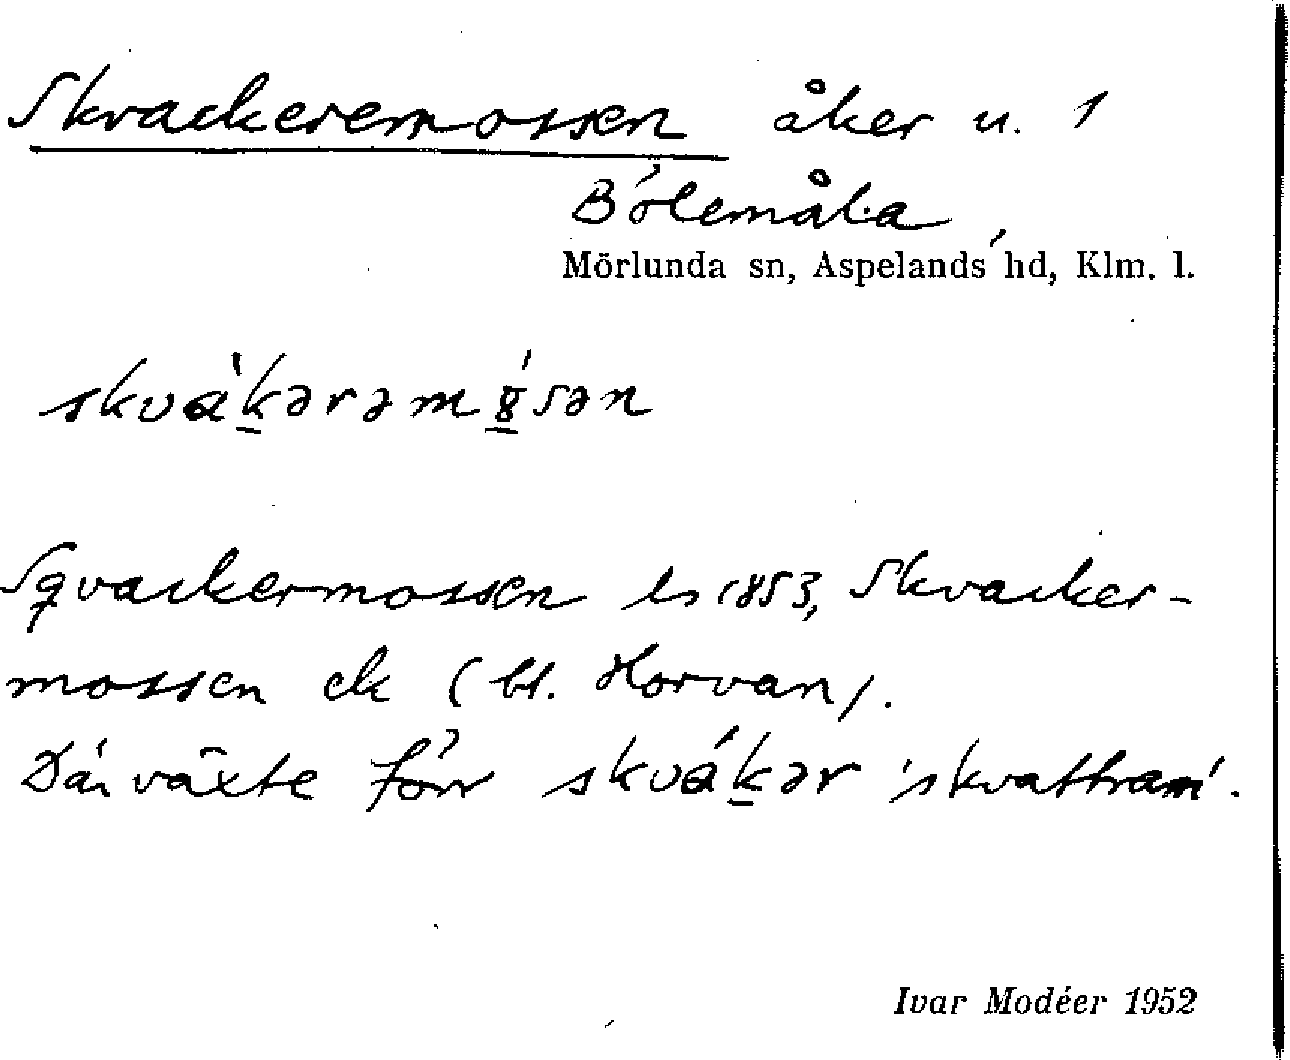 Skvackeremossen åker u. 1
Bölemåla,
Mörlunda sn, Aspelands hd, Klm. l.
skvàk̠ərəmó̠sən
Sqvackermossen ls 1853, Skvacker-
mossen ek (bl. Horvan).
Där växte förr skvák̠ər 'skvattram'.
Ivar Modéer 1952